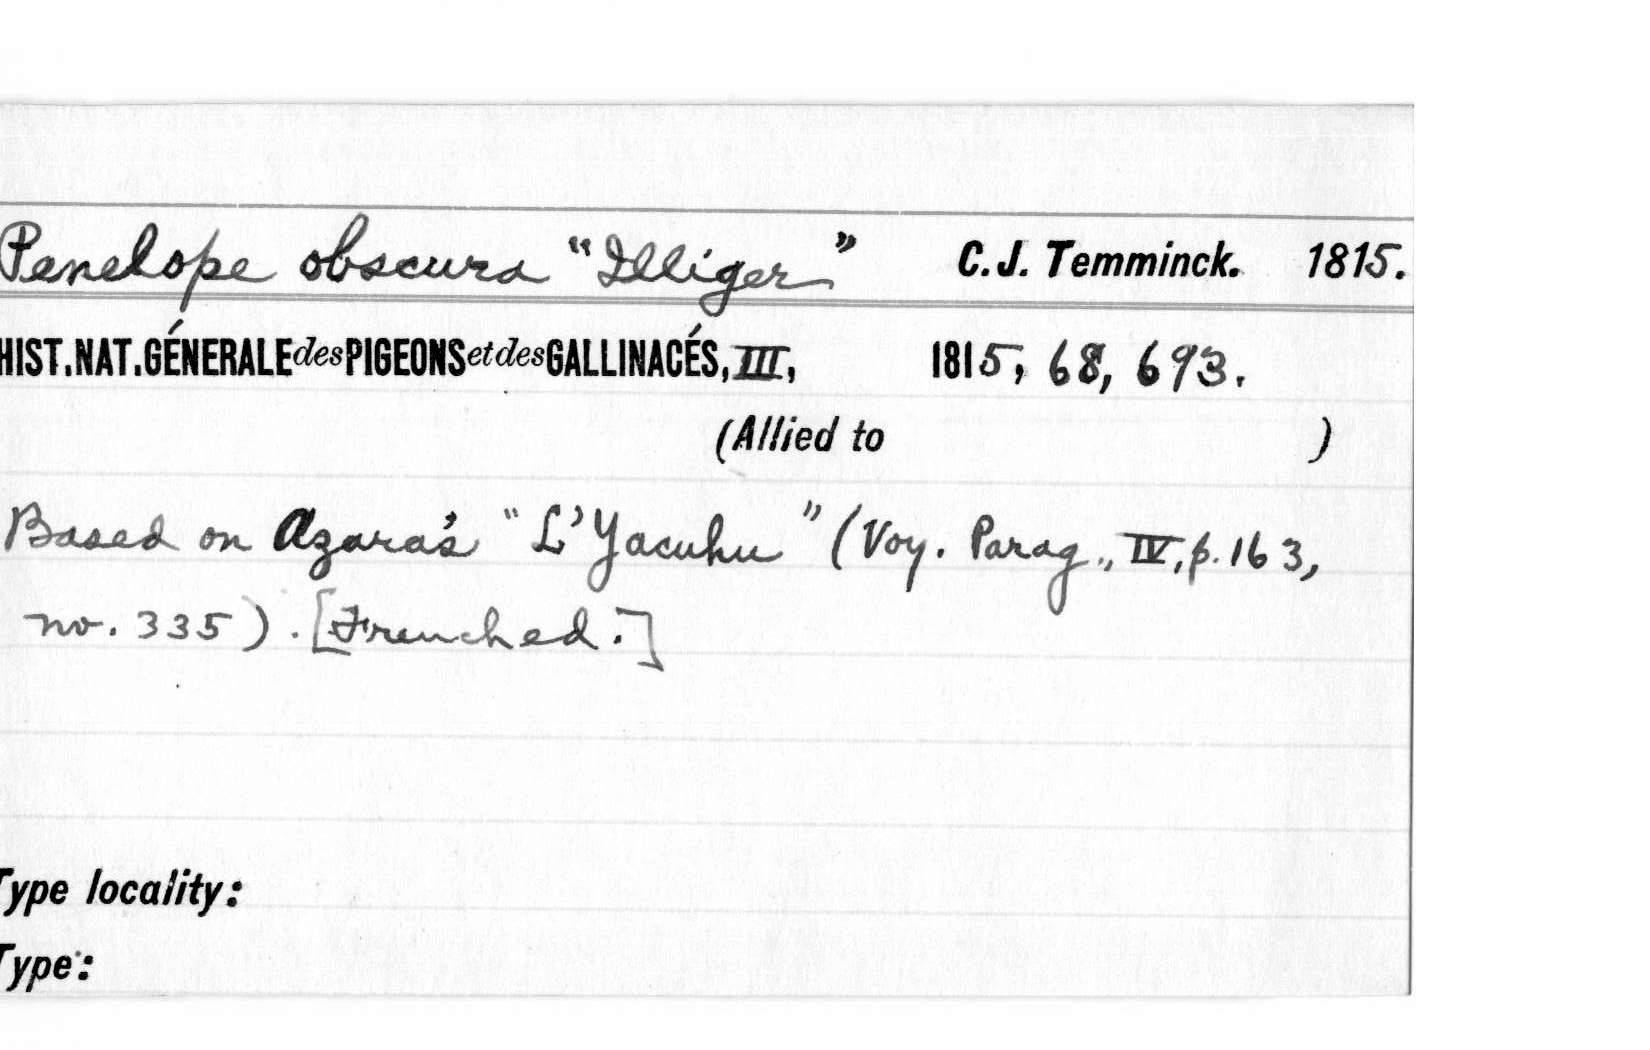 Penelope obscura "Illiger" C.J. Temminck. 1815.
HIST.NAT.GÉNERALE des PIGEONS et des GALLINACÉS, III, 1815, 68, 693.
(Allied to )
Based on Azara's "L'Yacuhu" (Voy. Parag., IV, p. 163,
no. 335). [Frenched.]
Type locality:
Type: